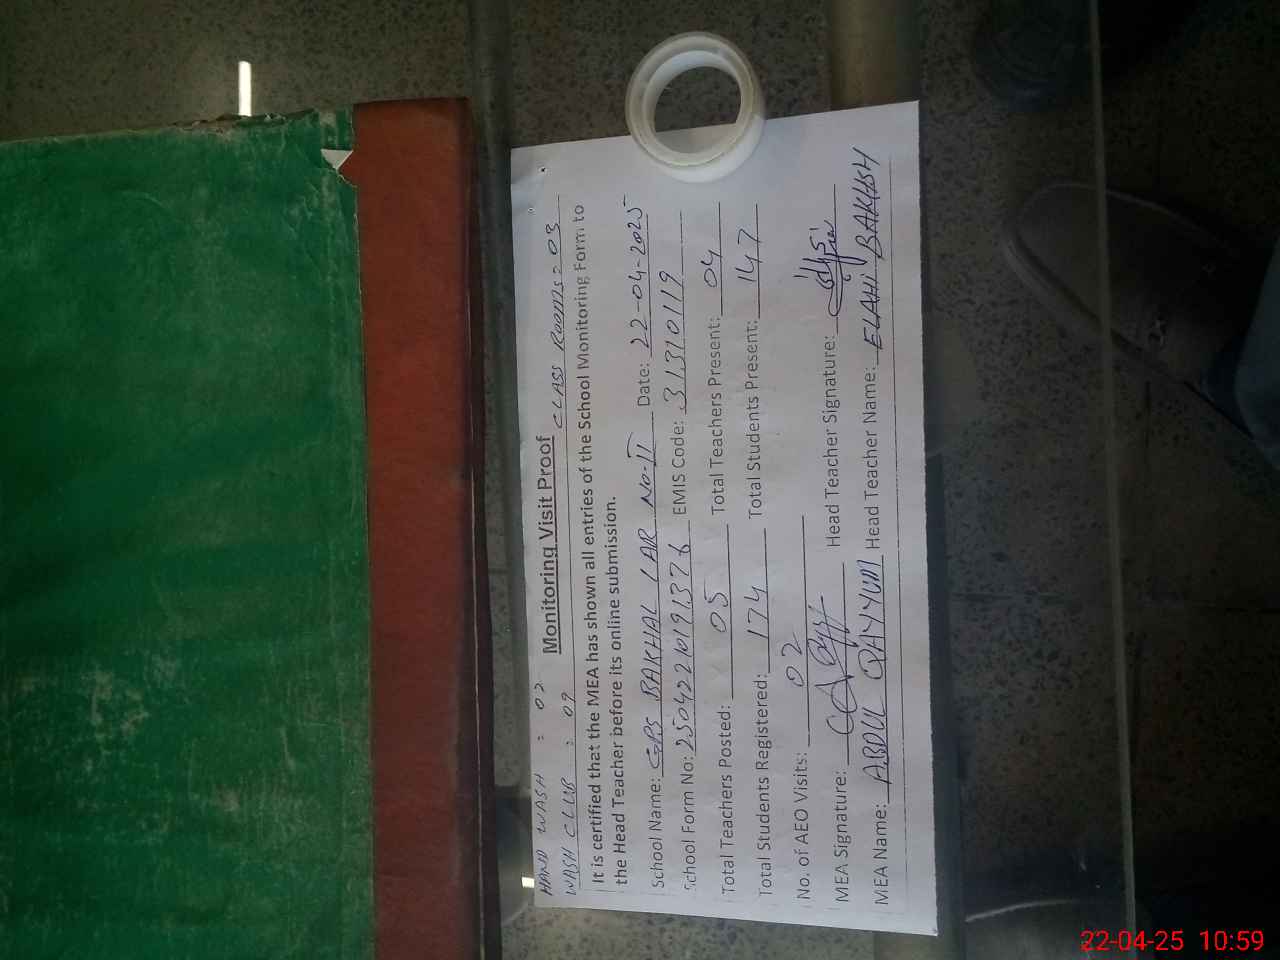 HAND WASH : 02
Monitoring Visit Proof
WASH CLUB : 09 CLASS ROOMS = 03
It is certified that the MEA has shown all entries of the School Monitoring Form to
the Head Teacher before its online submission.
School Name: GPS BAKHAL LAR No-II Date: 22-04-2025
School Form No: 25042210191376 EMIS Code: 31310119
Total Teachers Posted: 05 Total Teachers Present: 04
Total Students Registered: 174 Total Students Present: 147
No. of AEO Visits: 02
MEA Signature: Head Teacher Signature:
MEA Name: ABDUL QAYYUM Head Teacher Name: ELAHI BAKHSH
22-04-25 10:59